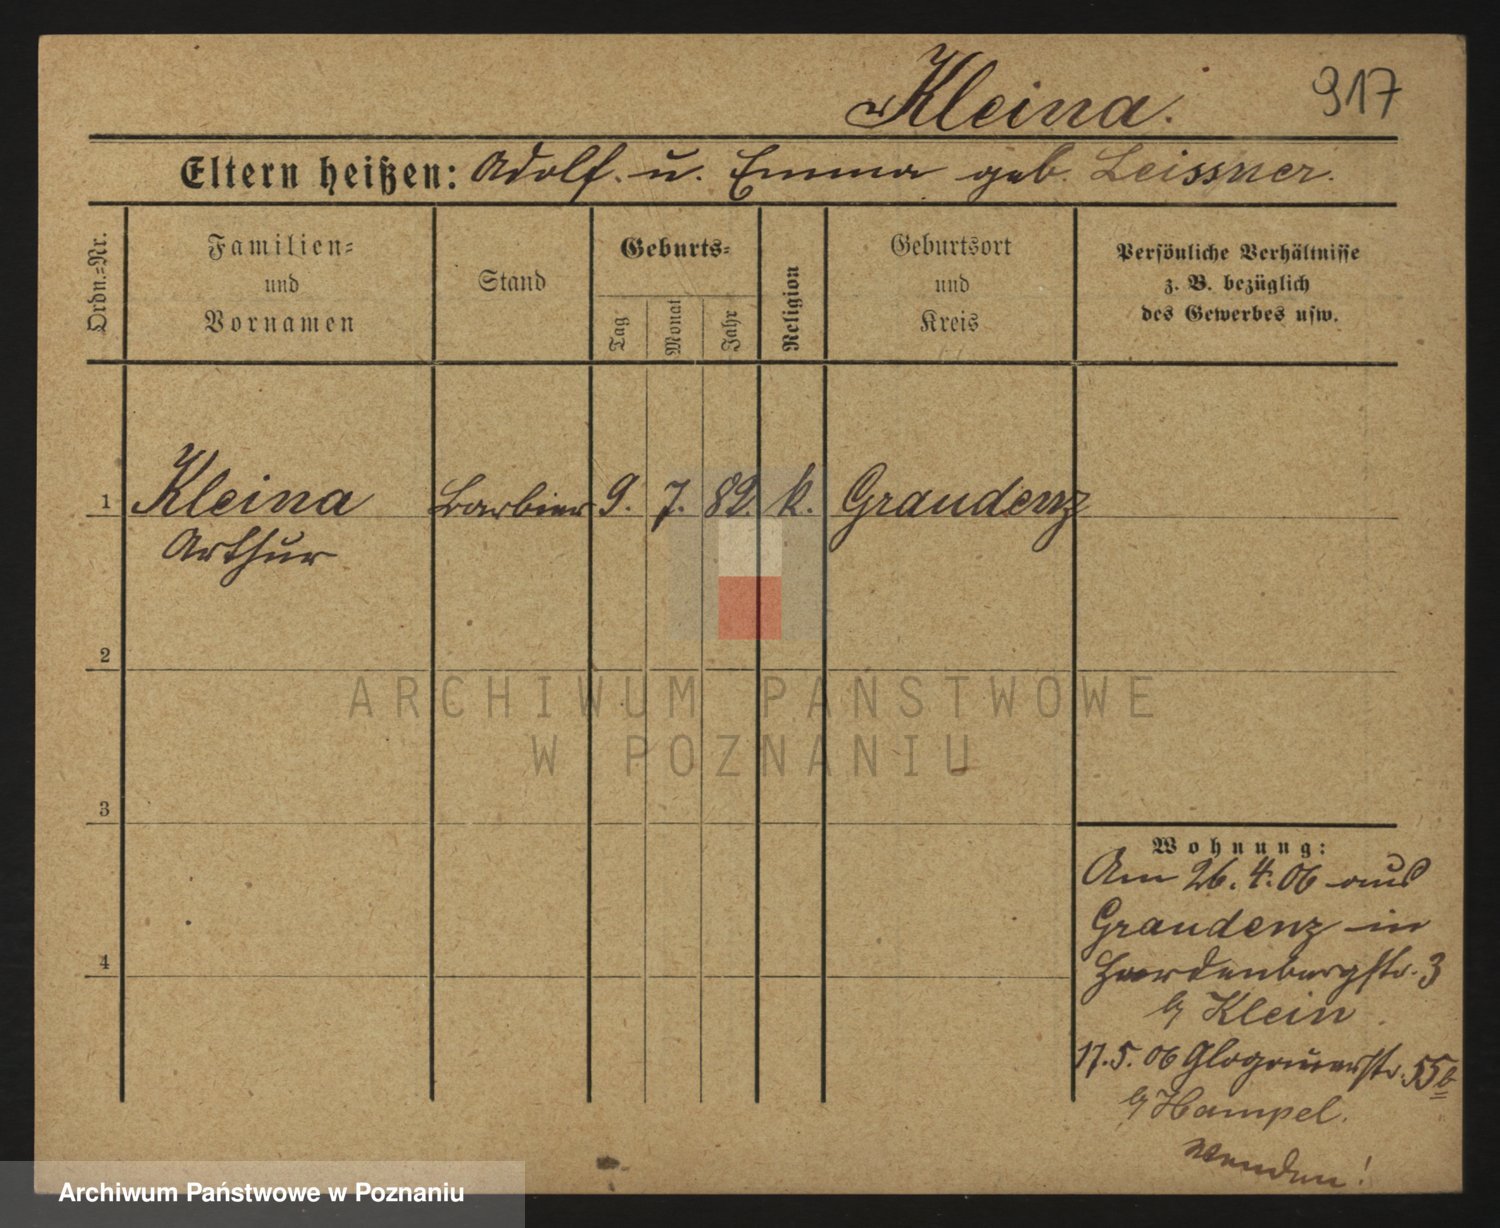 Kleina.
917
Eltern heißen: Adolf. u. Emma geb. Leissner.
Ordn.=Nr.
Familien=
und
Vornamen
Stand
Geburts=
Tag
Monat
Jahr
Religion
Geburtsort
und
Kreis
Persönliche Verhältnisse
z. B. bezüglich
des Gewerbes usw.
1 Kleina Barbier 9. 7. 82. k. Graudenz
Arthur
2
ARCHIWUM PAŃSTWOWE
W POZNANIU
3
Wohnung:
Am 26.4.06 aus
Graudenz in
4
Hardenbergstr. 3
b/ Klein.
17.5.06 Glogauerstr. 55b
b/ Hampel.
wenden!
Archiwum Państwowe w Poznaniu